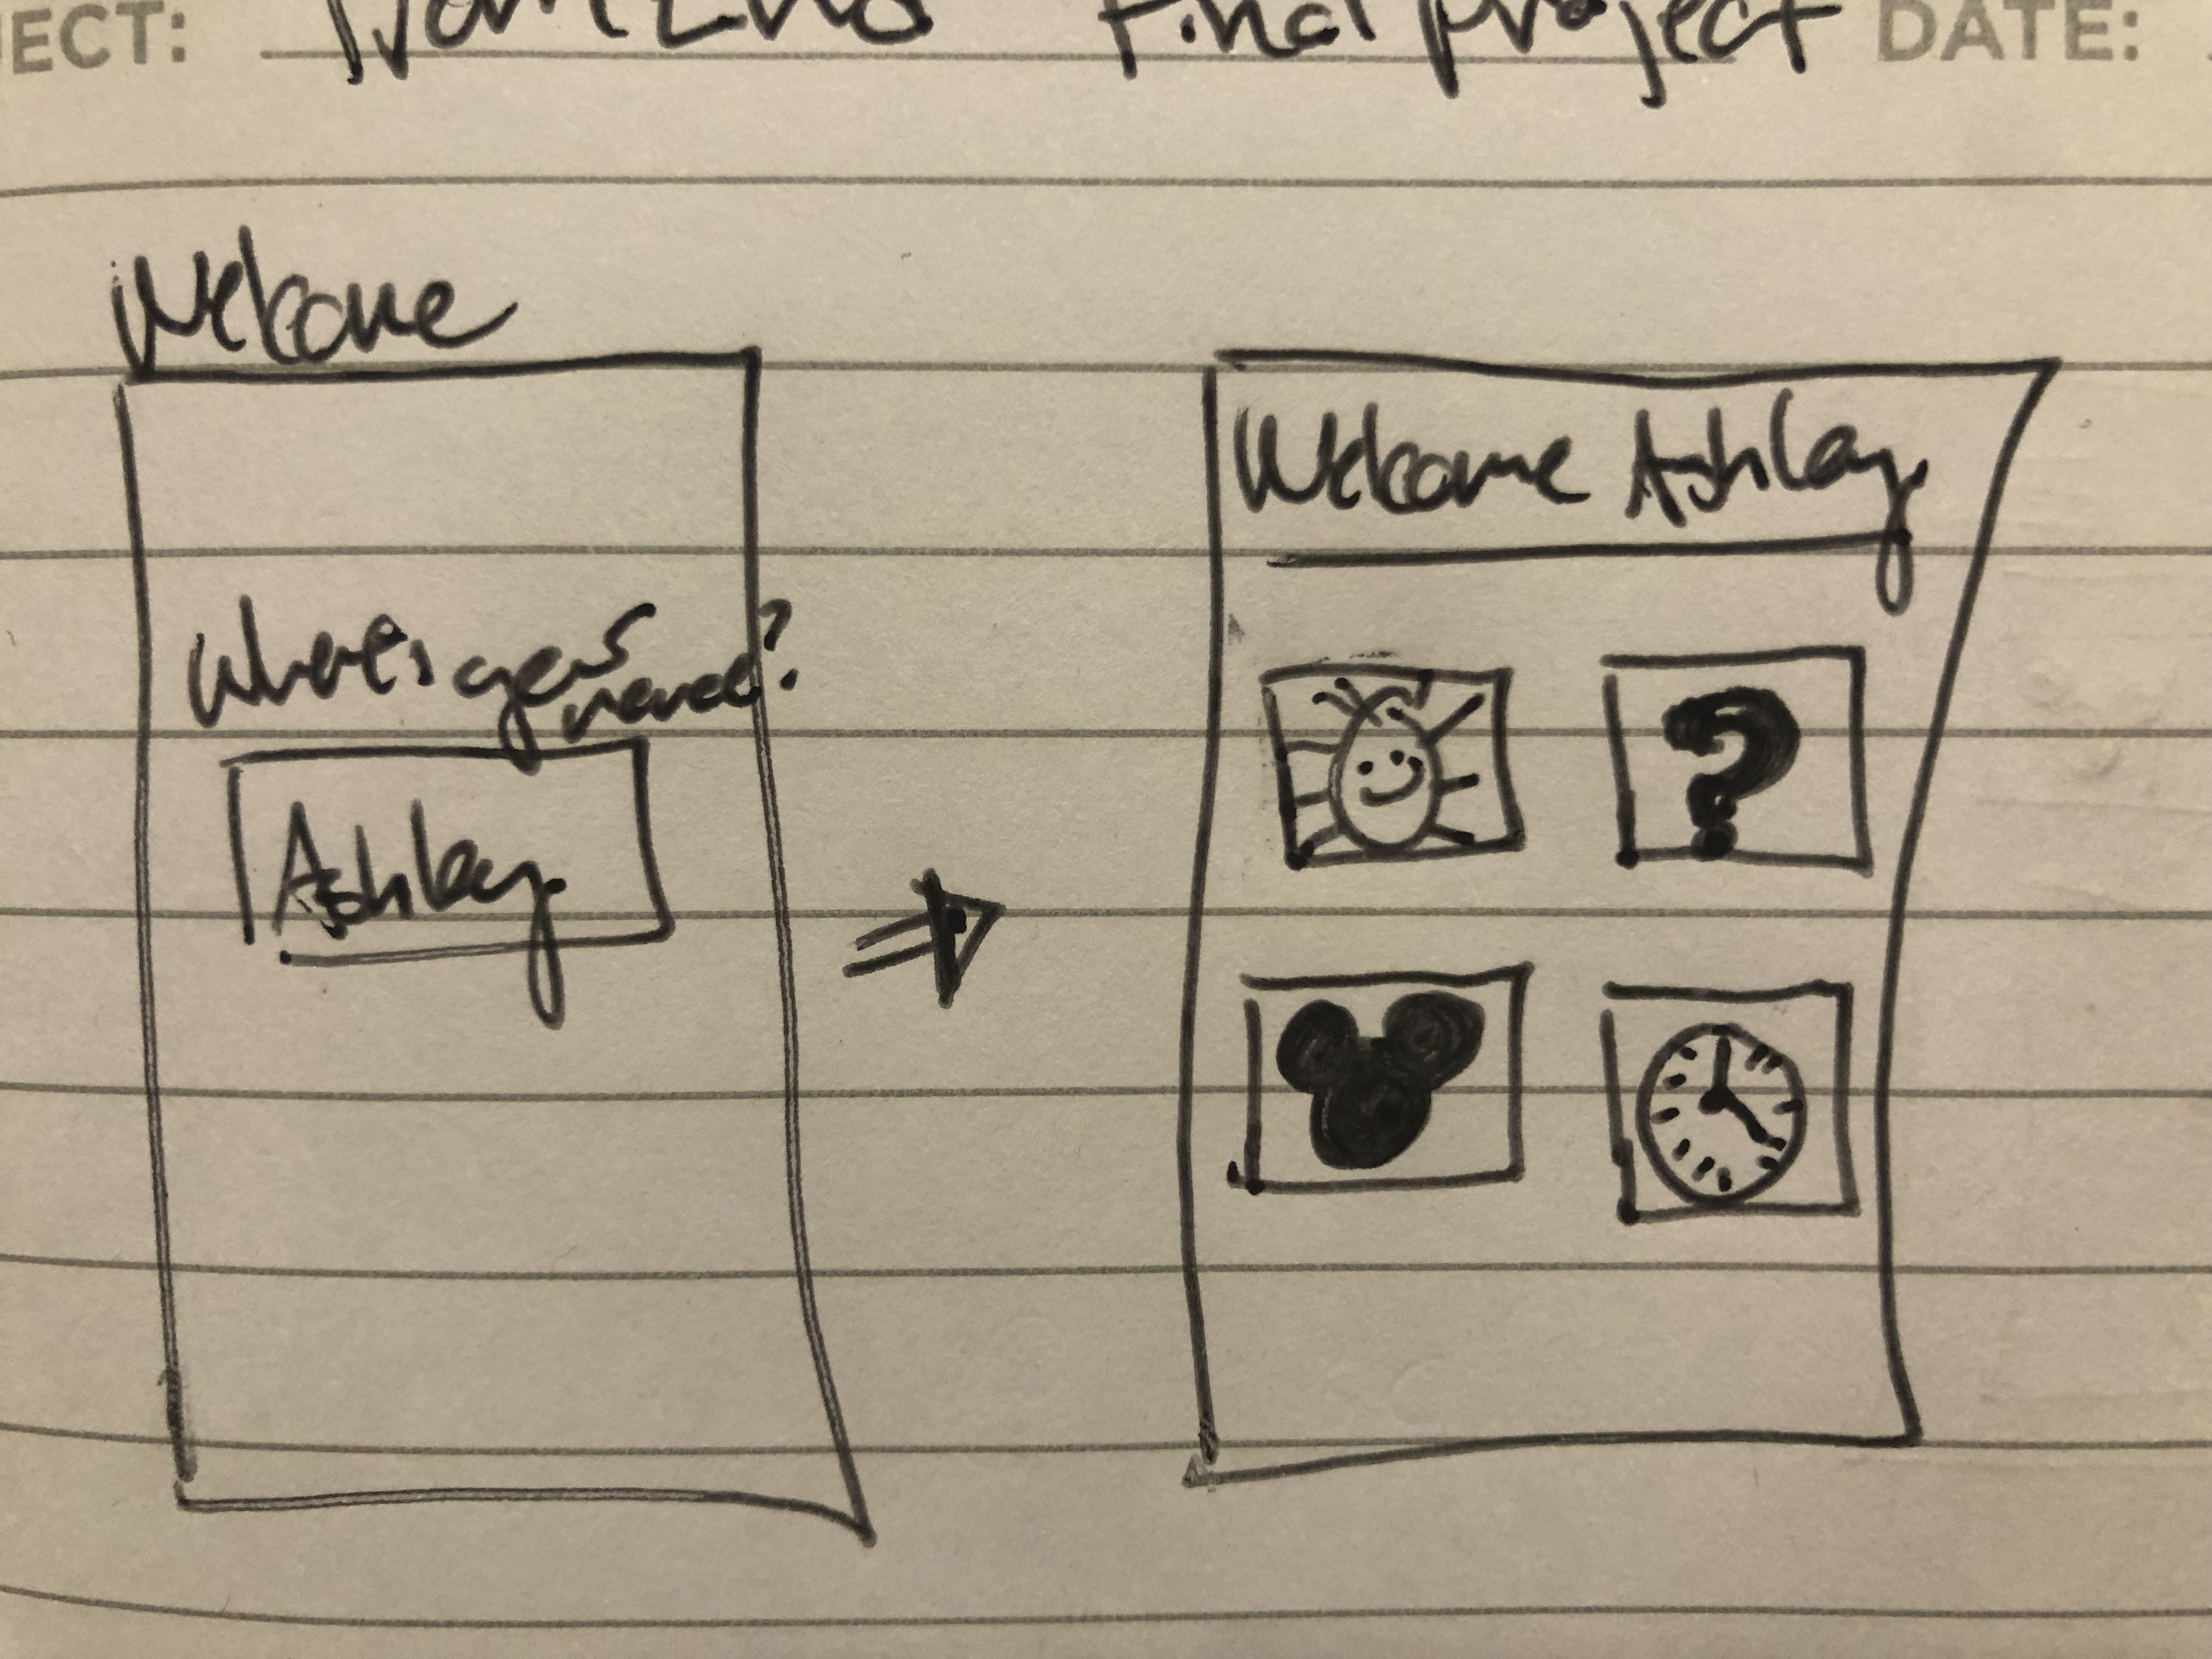 JECT: Front End Final project DATE:
Welcome
What's your
name?
Ashley
Welcome Ashley
?